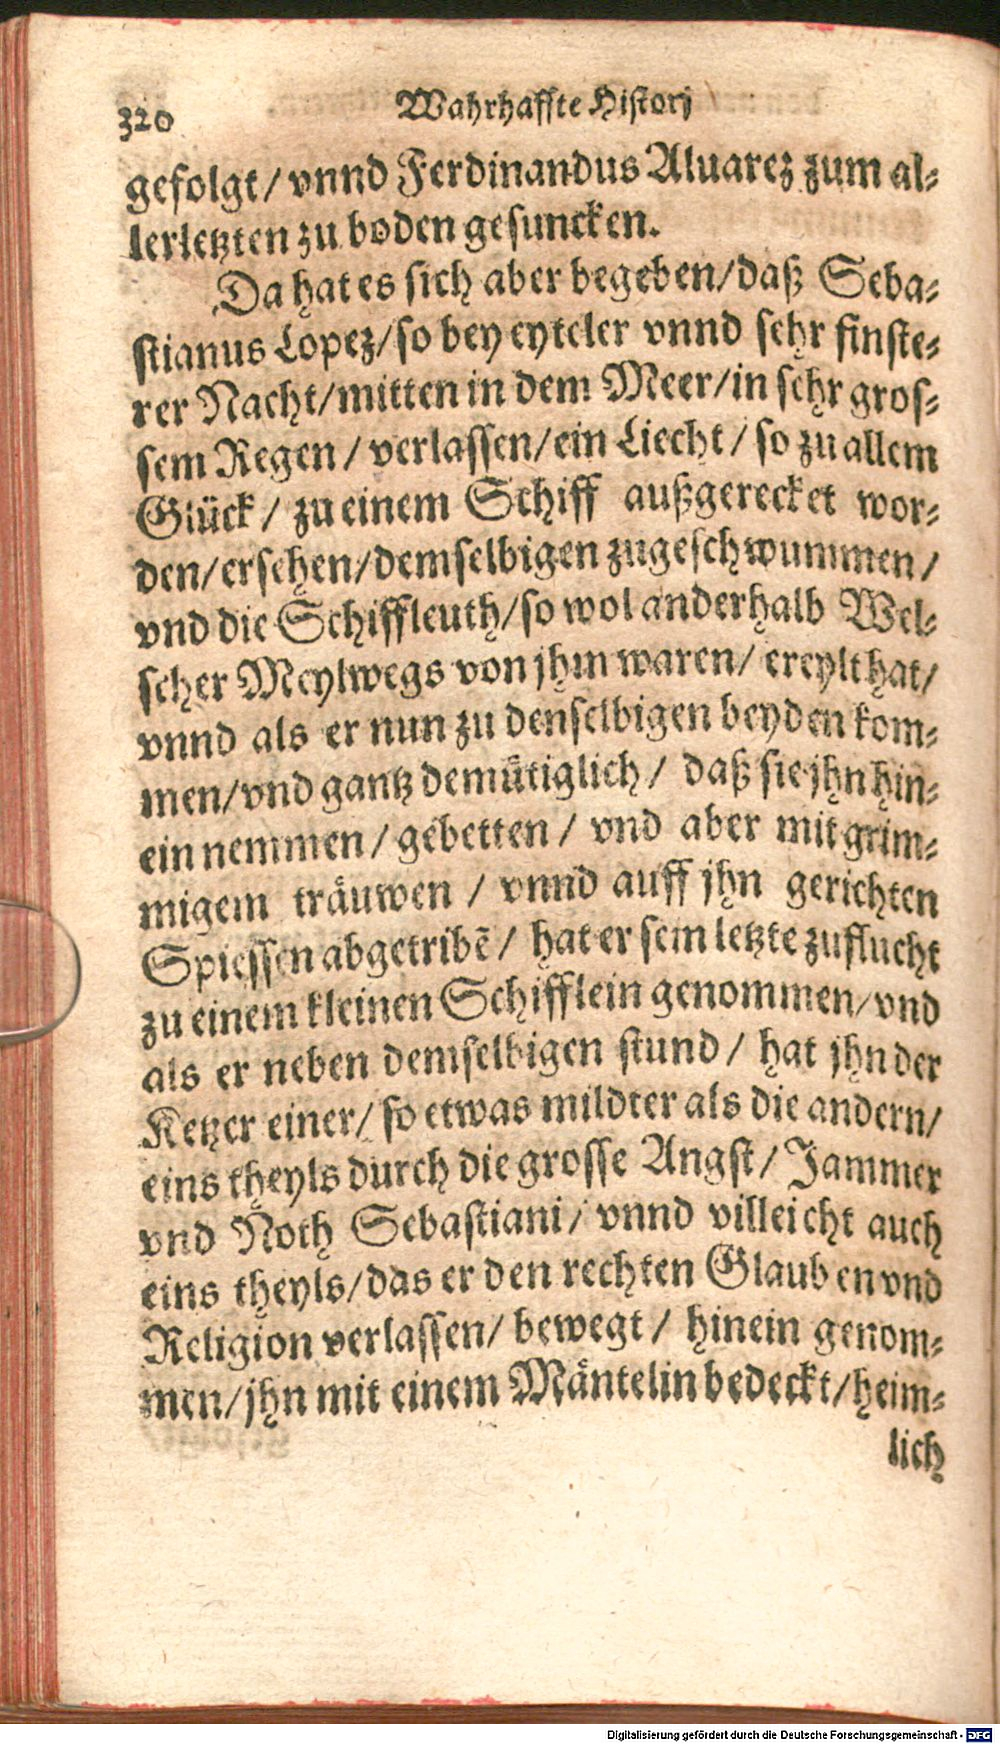 320 Wahrhaffte Historj
gefolgt/ vnnd Ferdinandus Aluarez zum al-
lerletzten zu boden gesuncken.
Da hat es sich aber begeben/daß Seba-
stianus Lopez/so bey eyteler vnnd sehr finste-
rer Nacht/mitten in dem Meer/in sehr gros-
sem Regen/ verlassen/ein Liecht/ so zu allem
Glück/ zu einem Schiff außgerecket wor-
den/ersehen/demselbigen zugeschwummen/
vnd die Schiffleuth/so wol anderhalb Wel-
scher Meylwegs von jhm waren/ ereylt hat/
vnnd als er nun zu denselbigen beyden kom-
men/vnd gantz demütiglich/ daß sie jhn hin-
ein nemmen/ gebetten/ vnd aber mit grim-
migem träuwen/ vnnd auff jhn gerichten
Spiessen abgetribẽ/ hat er sein letzte zuflucht
zu einem kleinen Schifflein genommen/vnd
als er neben demselbigen stund/ hat jhn der
Ketzer einer/ so etwas mildter als die andern/
eins theyls durch die grosse Angst/ Jammer
vnd Noth Sebastiani/ vnnd villeicht auch
eins theyls/das er den rechten Glauben vnd
Religion verlassen/ bewegt/ hinein genom-
men/jhn mit einem Mäntelin bedeckt/heim-
lich
Digitalisierung gefördert durch die Deutsche Forschungsgemeinschaft - DFG